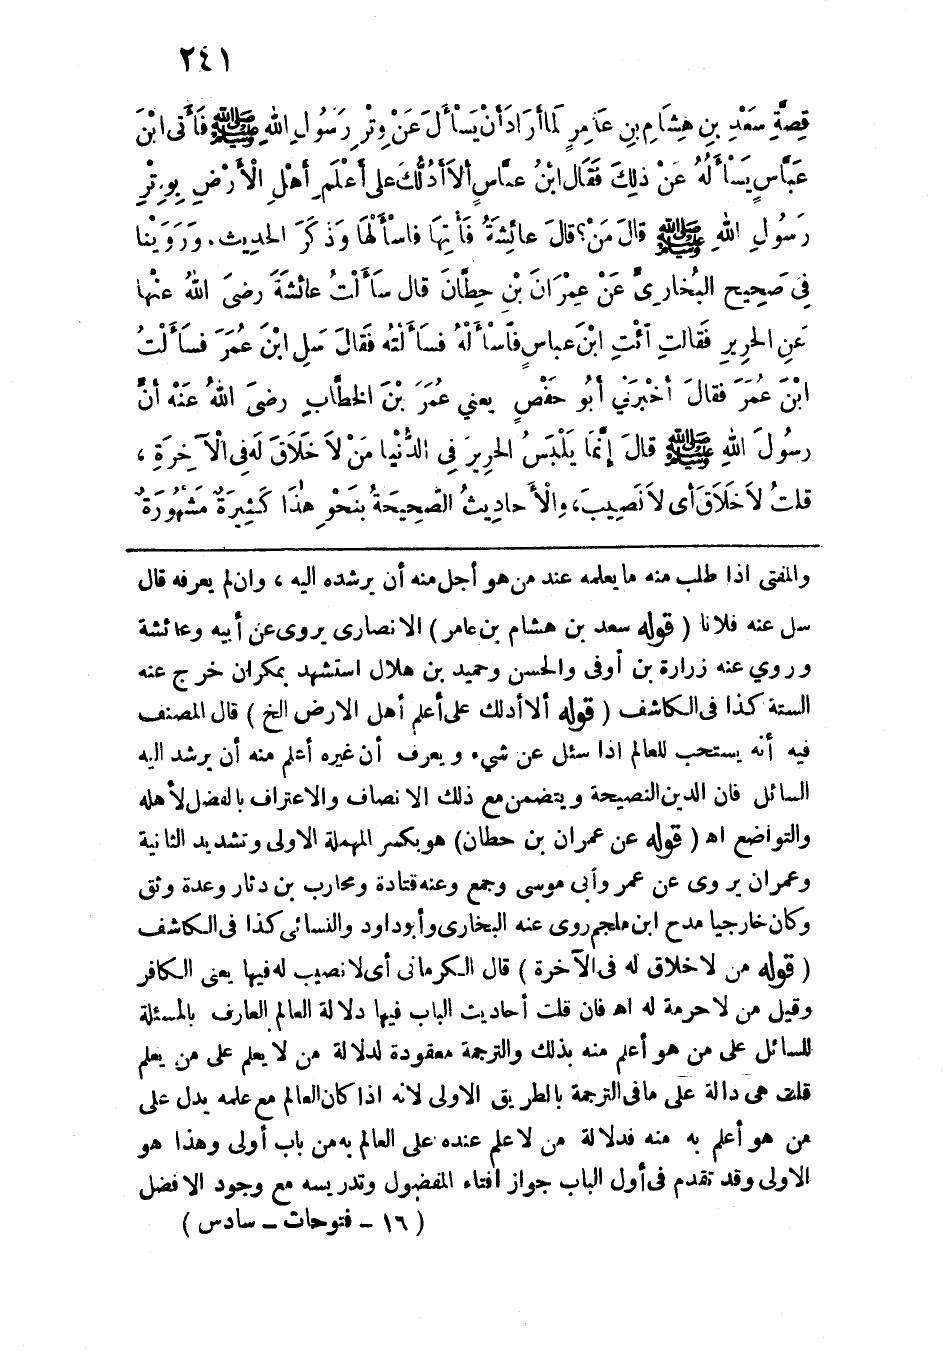 ٢٤١
قِصَّةِ سَعْدِ بنِ هِشَامِ بنِ عَامِرٍ لَمَا أَرَادَ أَنْ يَسْأَلَ عَنْ وِتْرِ رَسُولِ اللهِ ﷺ فَأَتى ابْنَ
عَبَّاسٍ يَسْأَلُهُ عَنْ ذلِكَ فَقَال ابْنُ عبَّاسٍ أَلاَ أَدُلُّكَ على أَعْلَمِ أَهْلِ الْأَرْضِ بِوِتْرِ
رَسُولِ اللهِ ﷺ قالَ مَنْ؟ قالَ عائِشَةُ فَأْتِهَا فاسْأَلْهَا وَذَكَرَ الحديث. وَرَوَيْنا
فِى صَحِيح البُخارِىِّ عَنْ عِمْرَانَ بْنِ حِطَّانَ قال سَأَلْتُ عائشَةَ رضىَ اللهُ عنْها
عَنِ الحْرِيرِ فَقالَتِ ٱئْتِ ابْنَ عباسٍ فَاسْأَلْهُ فسَأَلْتُه فَقَالَ سَلِ ابْنَ عُمَرَ فسَأَلْتُ
ابْنَ عُمَرَ فقالَ أَخْبَرَنِي أَبُو حَفْصٍ يعني عُمَرَ بْنَ الخطَّابِ رضىَ اللهُ عَنْه أَنَّ
رسُولَ اللهِ ﷺ قالَ إِنَّمَا يَلْبَسُ الحْرِيرَ فِى الدُّنْيا مَنْ لاَ خَلَاقَ لَه فِى الْآخِرَةِ ،
قلتُ لاَ خَلَاقَ أى لاَ نَصِيبَ، وَالْأَحادِيثُ الصَّحِيحَةُ بنَحْوِ هٰذَا كَثِيرَةٌ مَشْهُورَةٌ
والمفتى اذا طلب منه ما يعلمه عند من هو أجل منه أن يرشده اليه ، وان لم يعرفه قال
سل عنه فلانا ( قوله سعد بن هشام بن عامر ) الانصارى يروى عن أبيه وعائشة
وروي عنه زرارة بن أوفى والحسن وحميد بن هلال استشهد بمكران خرج عنه
الستة كذا فى الكاشف ( قوله ألا أدلك على أعلم أهل الارض الخ ) قال المصنف
فيه أنه يستحب للعالم اذا سئل عن شيء ويعرف أن غيره أعلم منه أن يرشد اليه
السائل فان الدين النصيحة ويتضمن مع ذلك الانصاف والاعتراف بالفضل لأهله
والتواضع اه ( قوله عن عمران بن حطان) هو بكسر المهملة الاولى وتشديد الثانية
وعمران يروى عن عمر وأبى موسى وجمع وعنه قتادة ومحارب بن دثار وعدة وثق
وكان خارجيا مدح ابن ملجم روى عنه البخارى وأبو داود والنسائى كذا فى الكاشف
( قوله من لا خلاق له فى الآخرة ) قال الكرمانى أى لا نصيب له فيها يعنى الكافر
وقيل من لا حرمة له اه فان قلت أحاديث الباب فيها دلالة العالم العارف بالمسئلة
للسائل على من هو أعلم منه بذلك والترجمة معقودة لدلالة من لا يعلم على من يعلم
قلت هى دالة على مافى الترجمة بالطريق الاولى لانه اذا كان العالم مع علمه يدل على
من هو أعلم به منه فدلالة من لا علم عنده على العالم به من باب أولى وهذا هو
الاولى وقد تقدم فى أول الباب جواز افتاء المفضول وتدريسه مع وجود الافضل
( ١٦ - فتوحات - سادس )